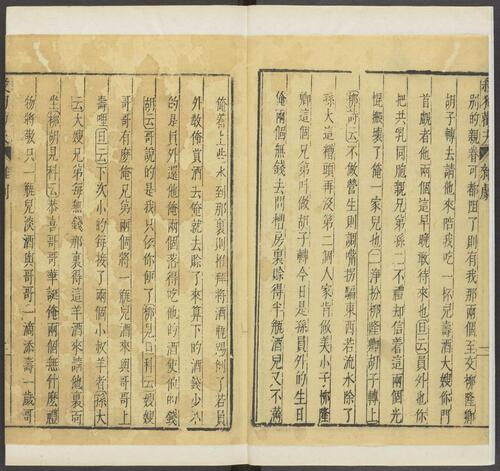 別的親眷可都阻了則有我那兩個至交柳隆卿
胡子轉去請他來陪我吃一杯兒壽酒大嫂你門
首覷者他兩個這早晚敢待來也旦云員外也你
把共乳同胞親兄弟孫二不禮却信着這兩個光
棍搬壞了俺一家兒也二淨扮柳隆卿胡子轉上
柳詩云不做營生則調嘴拐騙東西若流水除了
孫大這糟頭再沒第二個人家肯做美小子柳隆
卿這個兄弟叫做胡子轉今日是孫員外的生日
俺兩個無錢去問槽房裏賒得半瓶酒兒又不滿
俺着上些水到那裏則推拜將酒瓶踢倒了若員
外教俺買酒去俺就去賒了來算下的酒錢少不
的是員外還他俺兩個落得吃他的酒使他的錢
胡云哥說的是我只依你便了柳見旦科云嫂嫂
哥哥有麽俺兄弟兩個將一瓶兒酒來與哥哥上
壽哩旦云下次小的每接了兩個小叔羊者孫大
云大嫂兄弟每無錢那裏得這羊酒來請他裏面
坐柳胡見科云恭喜哥哥華誕俺兩個無什麽禮
物將敬只一瓶兒淡酒與哥哥一滴添壽一歲哥